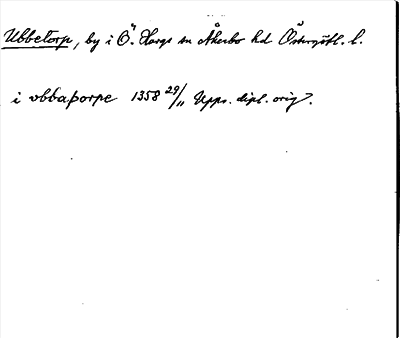 Ubbetorp, by i Ö. Hargs sn Åkerbo hd Östergötl. l.
i vbbaþorpe 1358 29/11 Upps. dipl. orig.